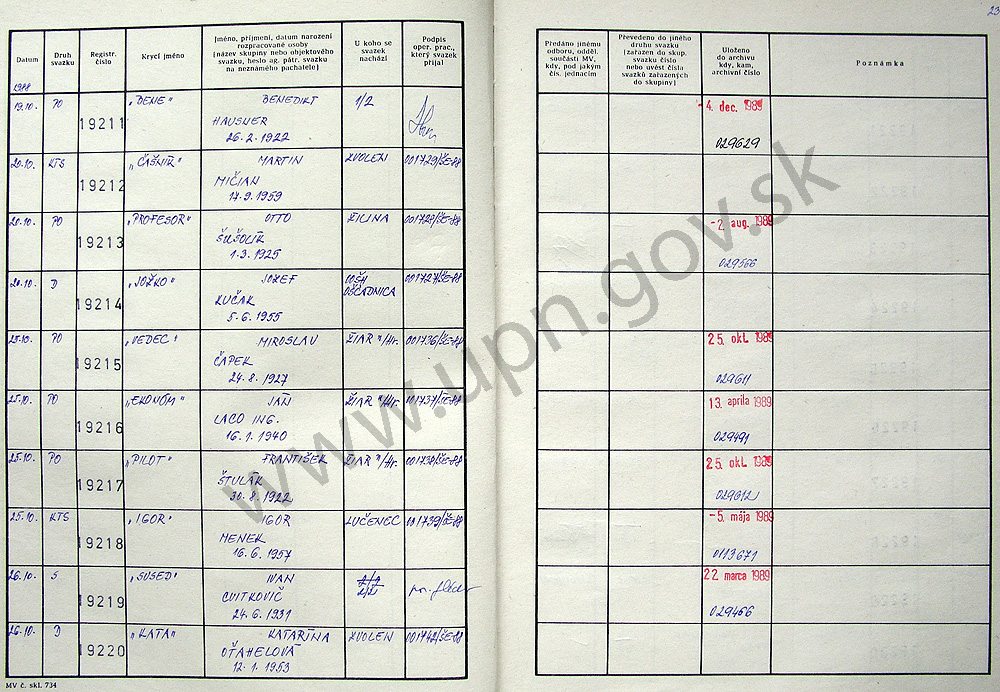 23
Datum
Druh svazku
Registr. číslo
Krycí jméno
Jméno, příjmení, datum narození
rozpracované osoby
(název skupiny nebo objektového
svazku, heslo ag. pátr. svazku
na neznámého pachatele)
U koho se
svazek
nachází
Podpis
oper. prac.,
který svazek
přijal
Předáno jinému
odboru, odděl.
součásti MV,
kdy, pod jakým
čís. jednacím
Převedeno do jiného
druhu svazku
(zařazen do skup.
svazku číslo
nebo uvést čísla
svazků zařazených
do skupiny)
Uloženo
do archivu
kdy, kam,
archivní číslo
Poznámka
1988
19.10. PO 19211 „BENE" BENEDIKT 1/2 - 4. dec. 1989
HAUSNER
26.2.1922 029629
20.10. KTS 19212 „ČAŠNÍK" MARTIN ZVOLEN 001729/ŠE-88
MIČIAN
17.9.1959
20.10. PO 19213 „PROFESOR" OTTO ŽILINA 001728/ŠE-88 - 2. aug. 1989
ŠUŠOLÍK
1.3.1925 029566
20.10. D 19214 „JOŽKO" JOZEF OOŠH OŠČADNICA 001727/ŠE-88
KUČAK
5.6.1955
25.10. PO 19215 „VEDEC" MIROSLAV ŽIAR n/Hr. 001736/ŠE-88 25. okt. 1989
ČAPEK
24.8.1927 029611
25.10. PO 19216 „EKONÓM" JÁN ŽIAR n/Hr. 001737/ŠE-88 13. apríla 1989
LACO ING.
16.1.1940 029491
25.10. PO 19217 „PILOT" FRANTIŠEK ŽIAR n/Hr. 001738/ŠE-88 25. okt. 1989
ŠTULÁK
30.8.1922 029612
25.10. KTS 19218 „IGOR" IGOR LUČENEC 001739/ŠE-88 - 5. mája 1989
MENEK
16.6.1957 0113671
26.10. S 19219 „SUSED" IVAN 2/2 22. marca 1989
CVITKOVIČ
24.6.1931 029466
26.10. D 19220 „KATA" KATARÍNA ZVOLEN 001742/ŠE-88
OŤAHELOVÁ
12.1.1953
MV č. skl. 734
www.upn.gov.sk